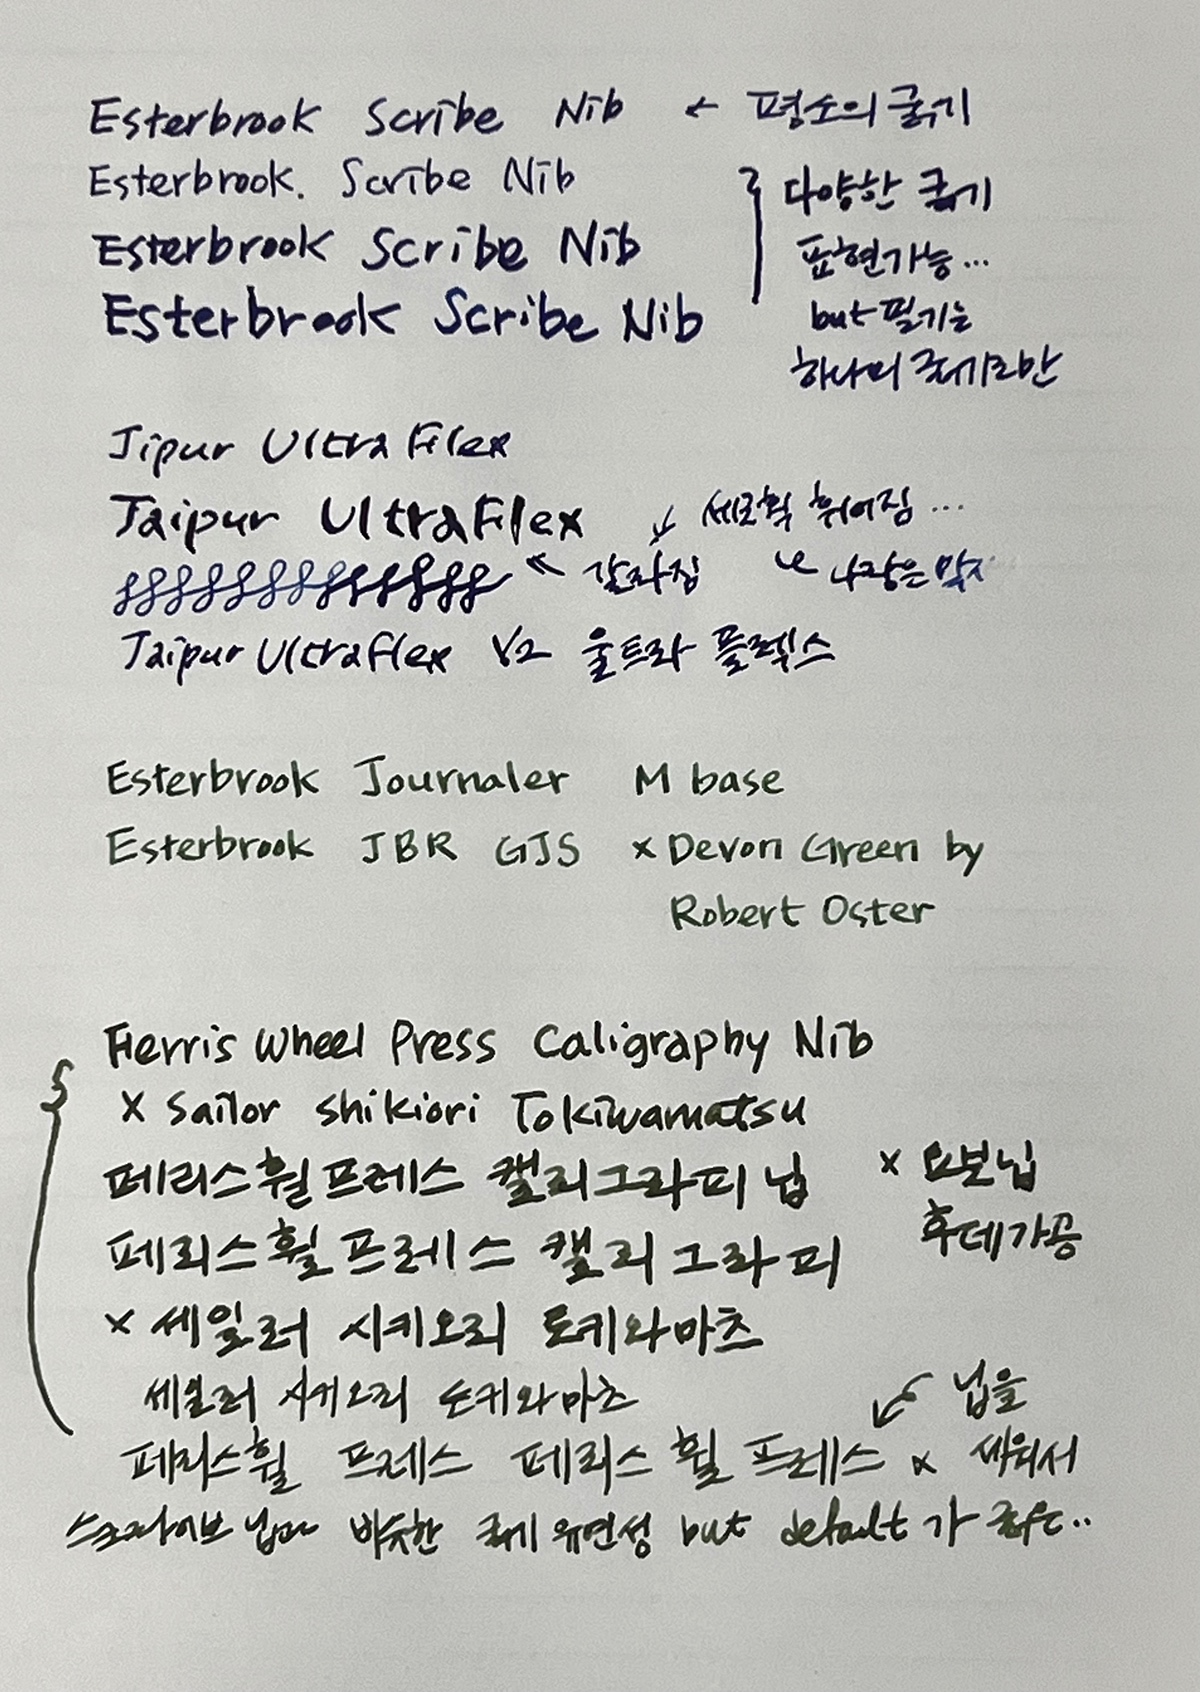 Esterbrook Scribe Nib ← 평소의 굵기
Esterbrook. Scribe Nib
다양한 굵기
Esterbrook Scribe Nib
표현가능...
Esterbrook Scribe Nib
but 필기는
하나의 굵기로만
Jipur UltraFlex
Jaipur UltraFlex
세로획 휘어짐 ...
갈라짐
나랑은 맞지
Jaipur Ultraflex V2 울트라 플렉스
Esterbrook Journaler M base
Esterbrook JBR GJS × Devon Green by
Robert Oster
Ferris Wheel Press Caligraphy Nib
× Sailor shikiori Tokiwamatsu
페리스휠프레스 캘리그라피 닙
× 요보닙
후데가공
페리스휠프레스 캘리그라피
× 세일러 시키오리 토키와마츠
세일러 시키오리 토키와마츠
닙을
페리스휠 프레스 페리스휠 프레스 × 세워서
스크라이브 닙과 비슷한 굵기 유연성 but default가 굵은..